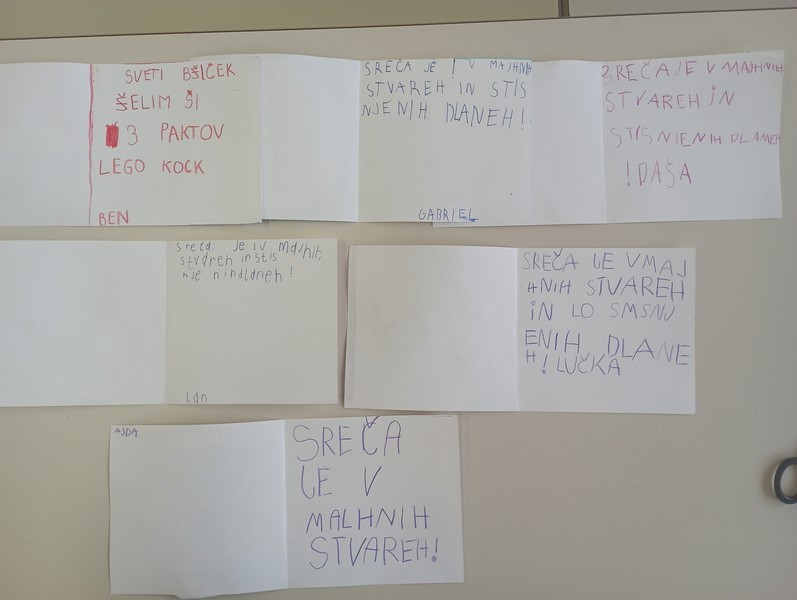 SVETI BŠIČEK
ŠELIM ŠI
3 PAKTOV
LEGO KOCK
BEN
SREČA JE ! V MAJHNIH
STVAREH IN STIS
NJENIH DLANEH!
GABRIEL
SREČA JE V MAJHNIH
STVAREH IN
STISNIENIH DLANEH
! DAŠA
sreča: je i v majhnih,
stvareh in stis
nje nihdlaneh!
lan
SREČA JE V MAJ
HNIH STVAREH
IN LO SMSNJ
ENIH DLANE
H! LUČKA
AJDA
SREČA
JE V
MALHNIH
STVAREH!